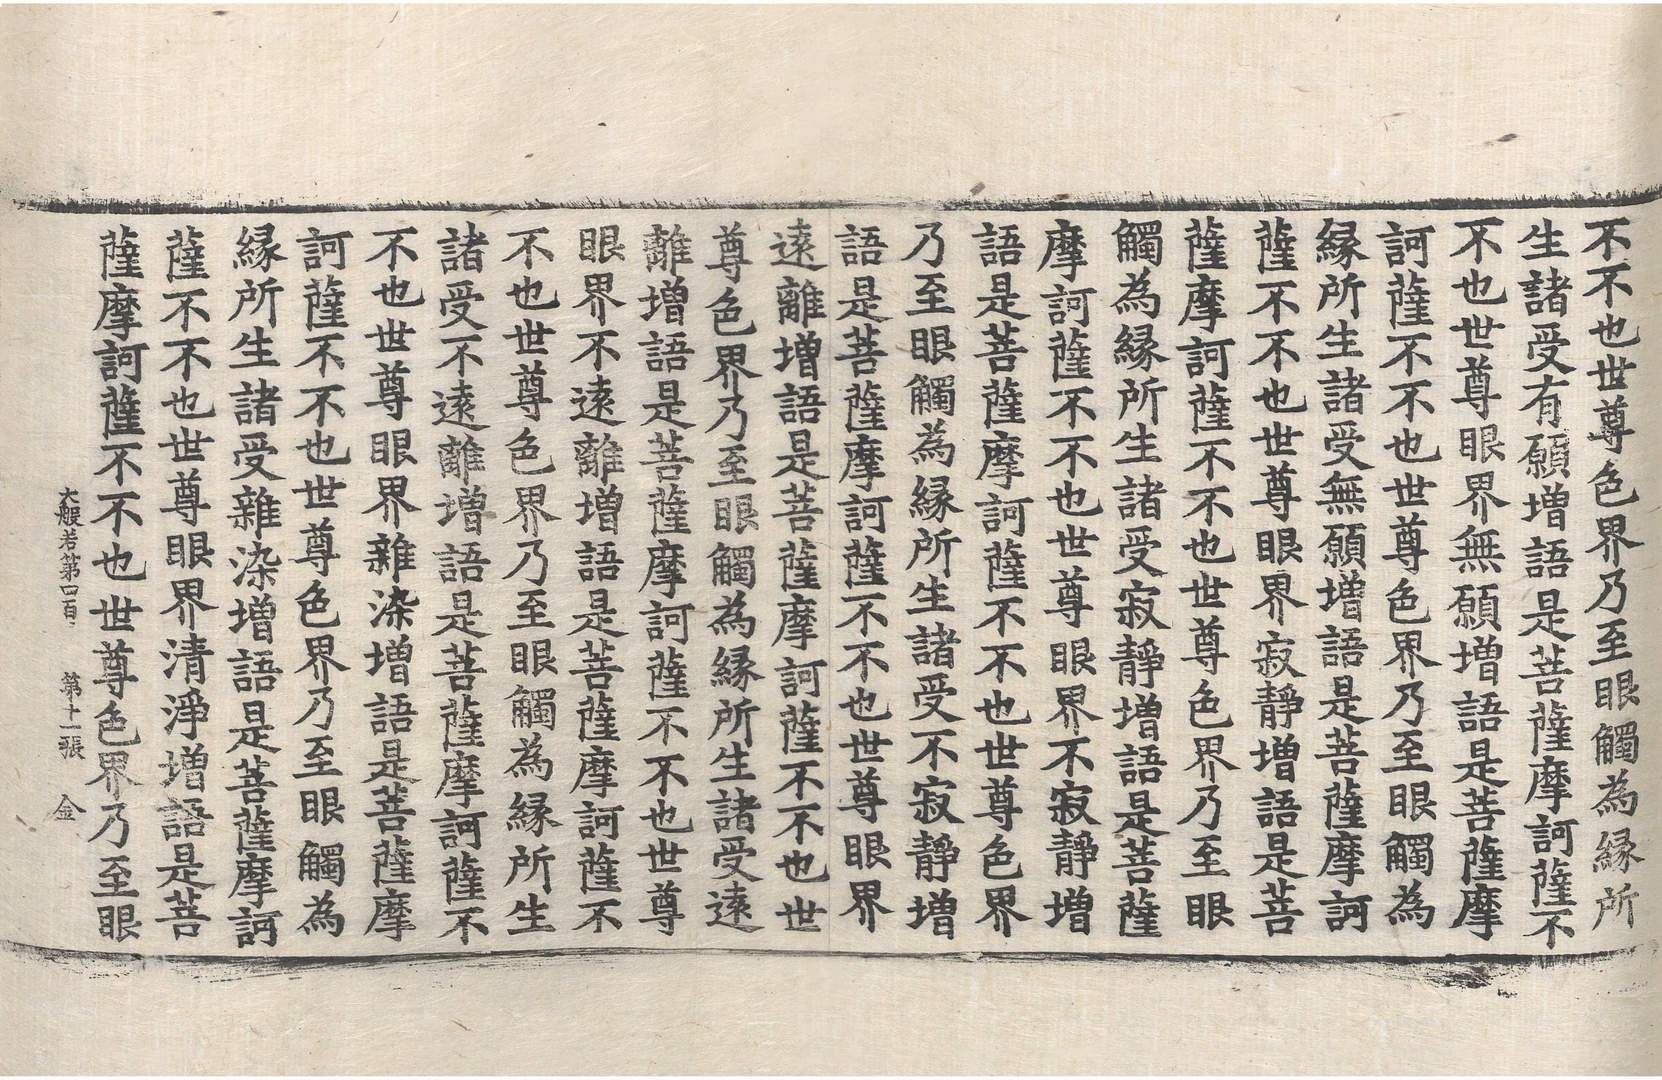 不不也世尊色界乃至眼觸為縁所
生諸受有願增語是菩薩摩訶薩不
不也世尊眼界無願增語是菩薩摩
訶薩不不也世尊色界乃至眼觸為
縁所生諸受無願增語是菩薩摩訶
薩不不也世尊眼界寂靜增語是菩
薩摩訶薩不不也世尊色界乃至眼
觸為縁所生諸受寂靜增語是菩薩
摩訶薩不不也世尊眼界不寂靜增
語是菩薩摩訶薩不不也世尊色界
乃至眼觸為縁所生諸受不寂靜增
語是菩薩摩訶薩不不也世尊眼界
遠離增語是菩薩摩訶薩不不也世
尊色界乃至眼觸為縁所生諸受遠
離增語是菩薩摩訶薩不不也世尊
眼界不遠離增語是菩薩摩訶薩不
不也世尊色界乃至眼觸為縁所生
諸受不遠離增語是菩薩摩訶薩不
不也世尊眼界雜染增語是菩薩摩
訶薩不不也世尊色界乃至眼觸為
縁所生諸受雜染增語是菩薩摩訶
薩不不也世尊眼界清淨增語是菩
薩摩訶薩不不也世尊色界乃至眼
大般若第四百 第十一張 金